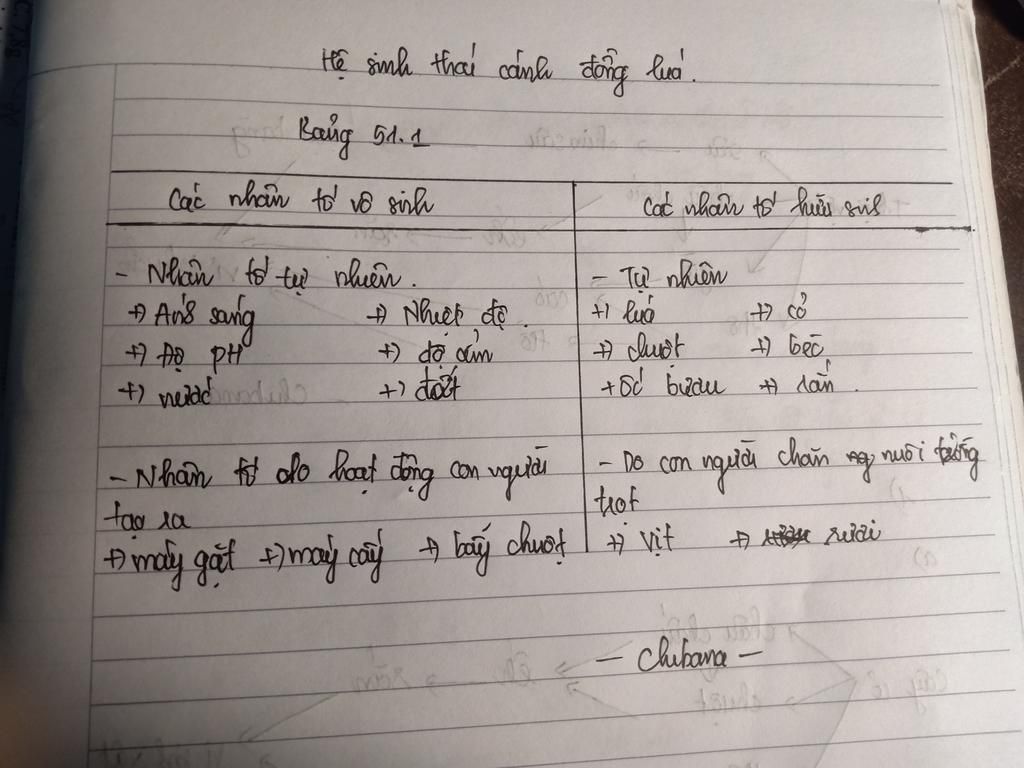 Hệ sinh thái cánh đồng luá.
Bảng 51.1
Các nhân tố vô sinh
Các nhân tố hữu sih
- Nhân tố tự nhiên.
+) Ánh sáng +) Nhiệt độ.
+) Độ pH +) độ ẩm
+) nước +) đất
- Nhân tố do hoạt động con người
tạo ra
+) máy gặt +) máy cấy +) bẫy chuột
- Tự nhiên
+) luá +) cỏ
+) chuột +) bèo
+ ốc bươu +) rắn.
- Do con người chăn nuôi trồng
trọt
+) vịt +) rươi
- Chibana -